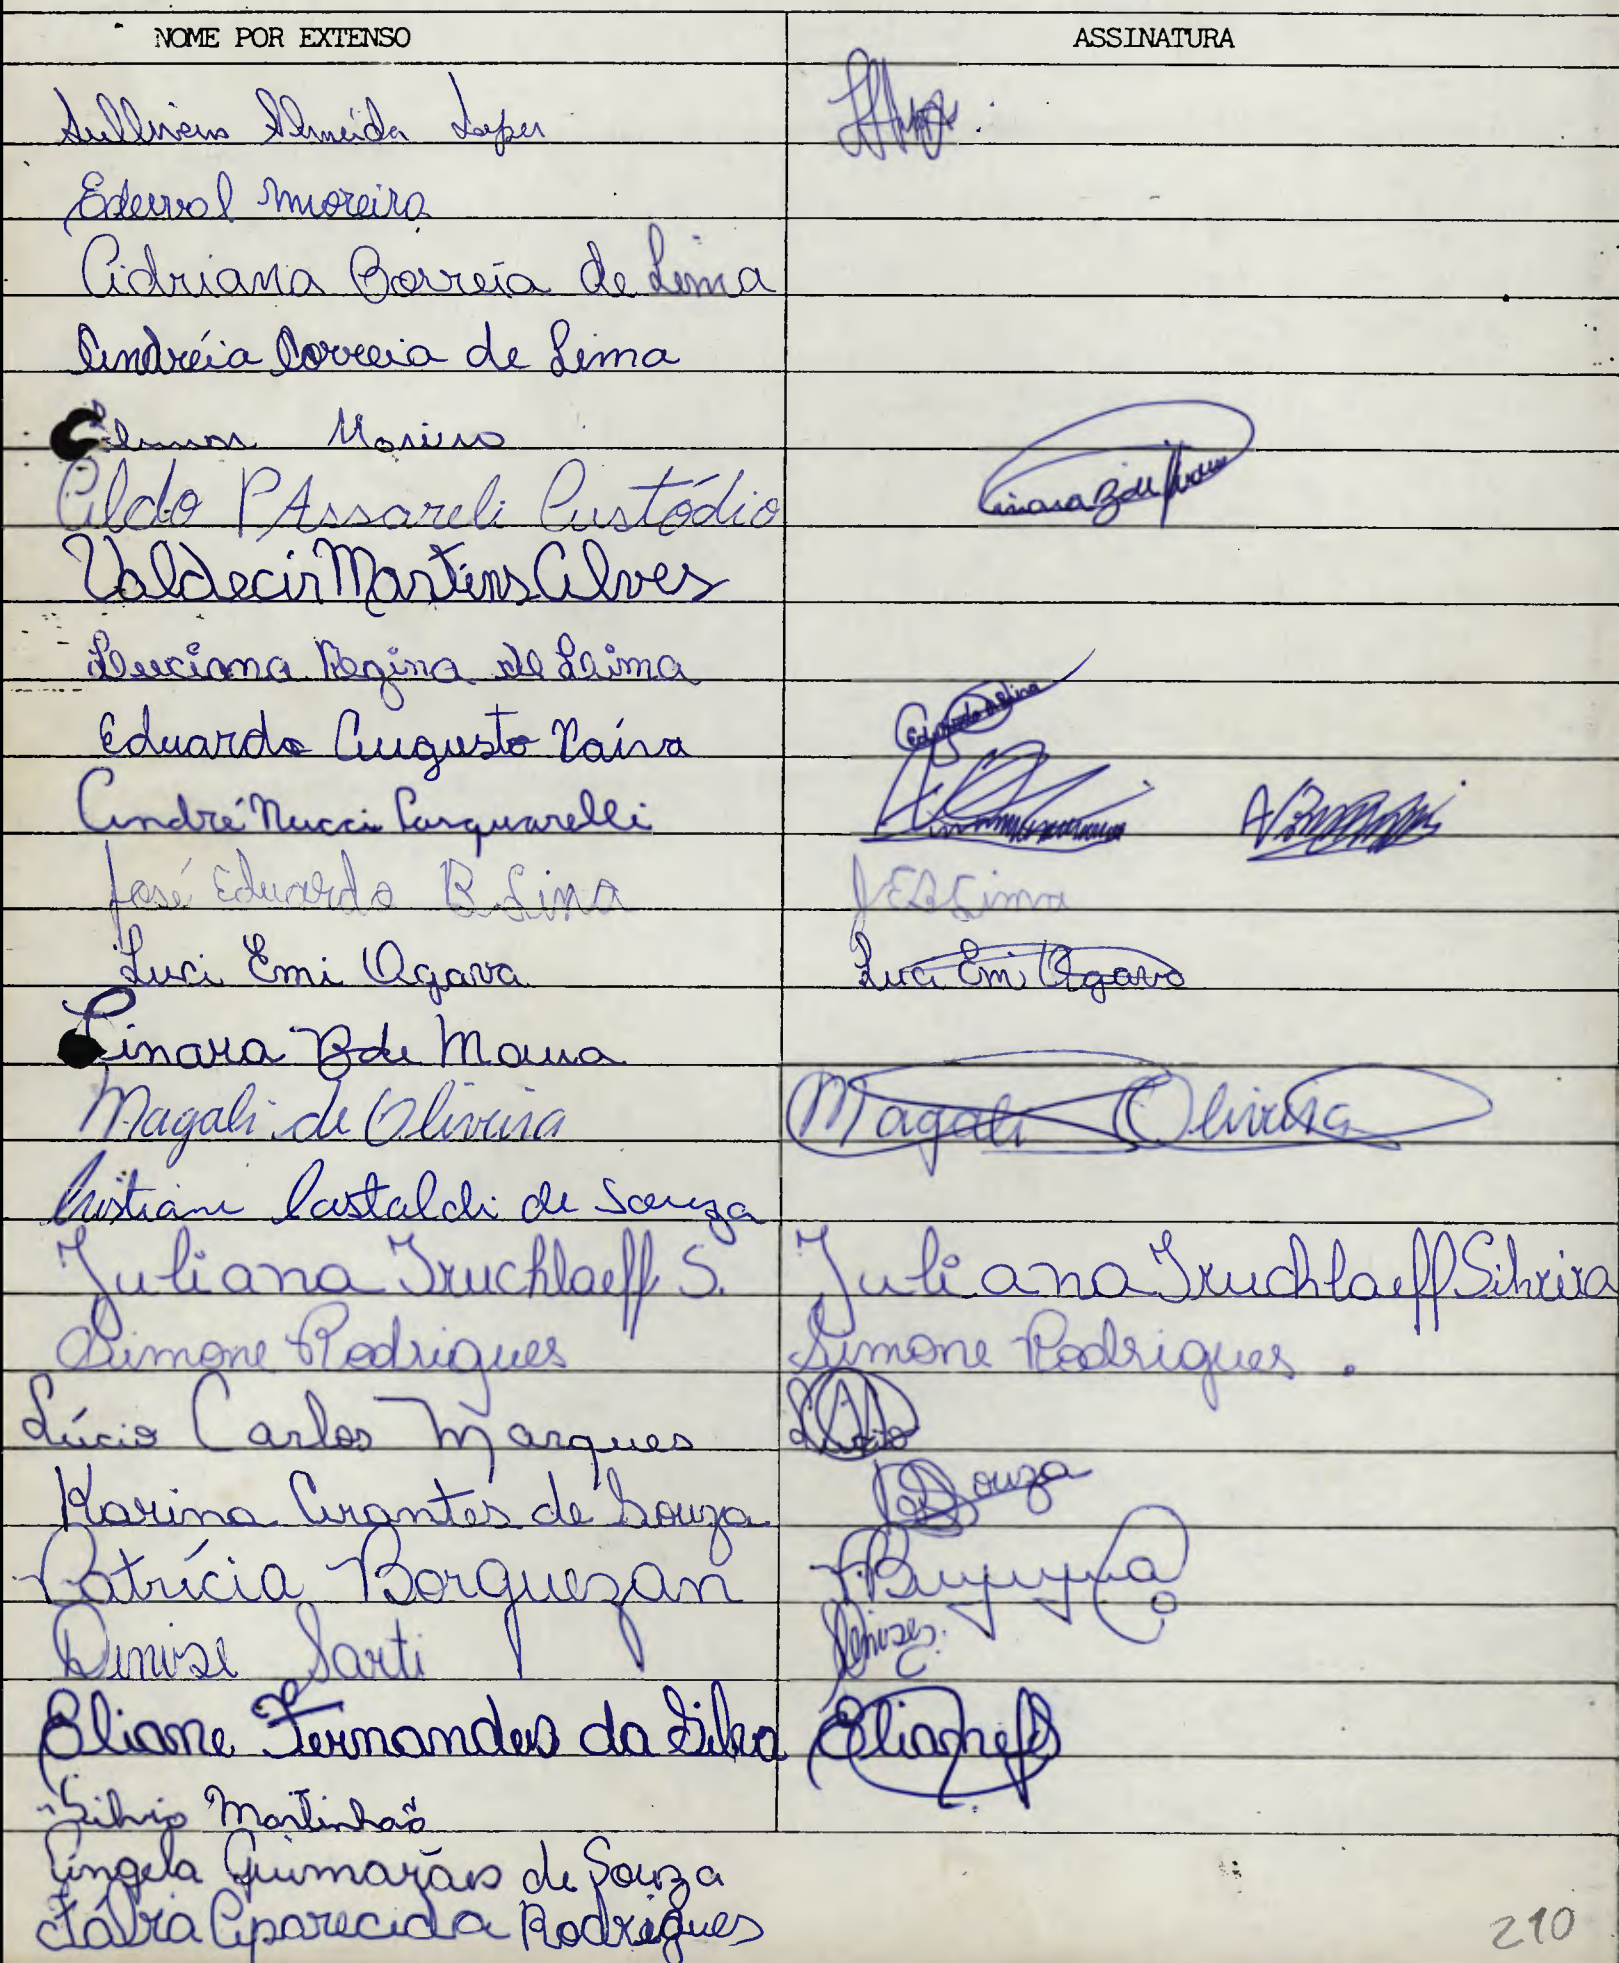 NOME POR EXTENSO ASSINATURA
Almeida Lopes
Ederval Moreira
Adriana Correia de Lima
Andréia Correia de Lima
Moreira
Aldo PAssareli Custódio
Valdecir Martins Alves
Luciana Regina de Laima
Eduardo Augusto
André Nucci
José Eduardo B. Lima JEBLima
Luci Emi Ogava Luci Emi Ogava
Linara B de Moura
Magali de Oliveira Magali Oliveira
Cristiane Castaldi de Souza
Juliana Truchlaeff S. Juliana Truchlaeff Silveira
Simone Rodrigues Simone Rodrigues .
Lúcio Carlos Marques Lúcio
Karina Arantes de Souza Souza
Patrícia Borguezan
Denise Sarti Denise S.
Eliane Fernandes da Silva Eliane
Silvio Martinhão
Angela Guimarães de Souza
Flávia Aparecida Rodrigues
210